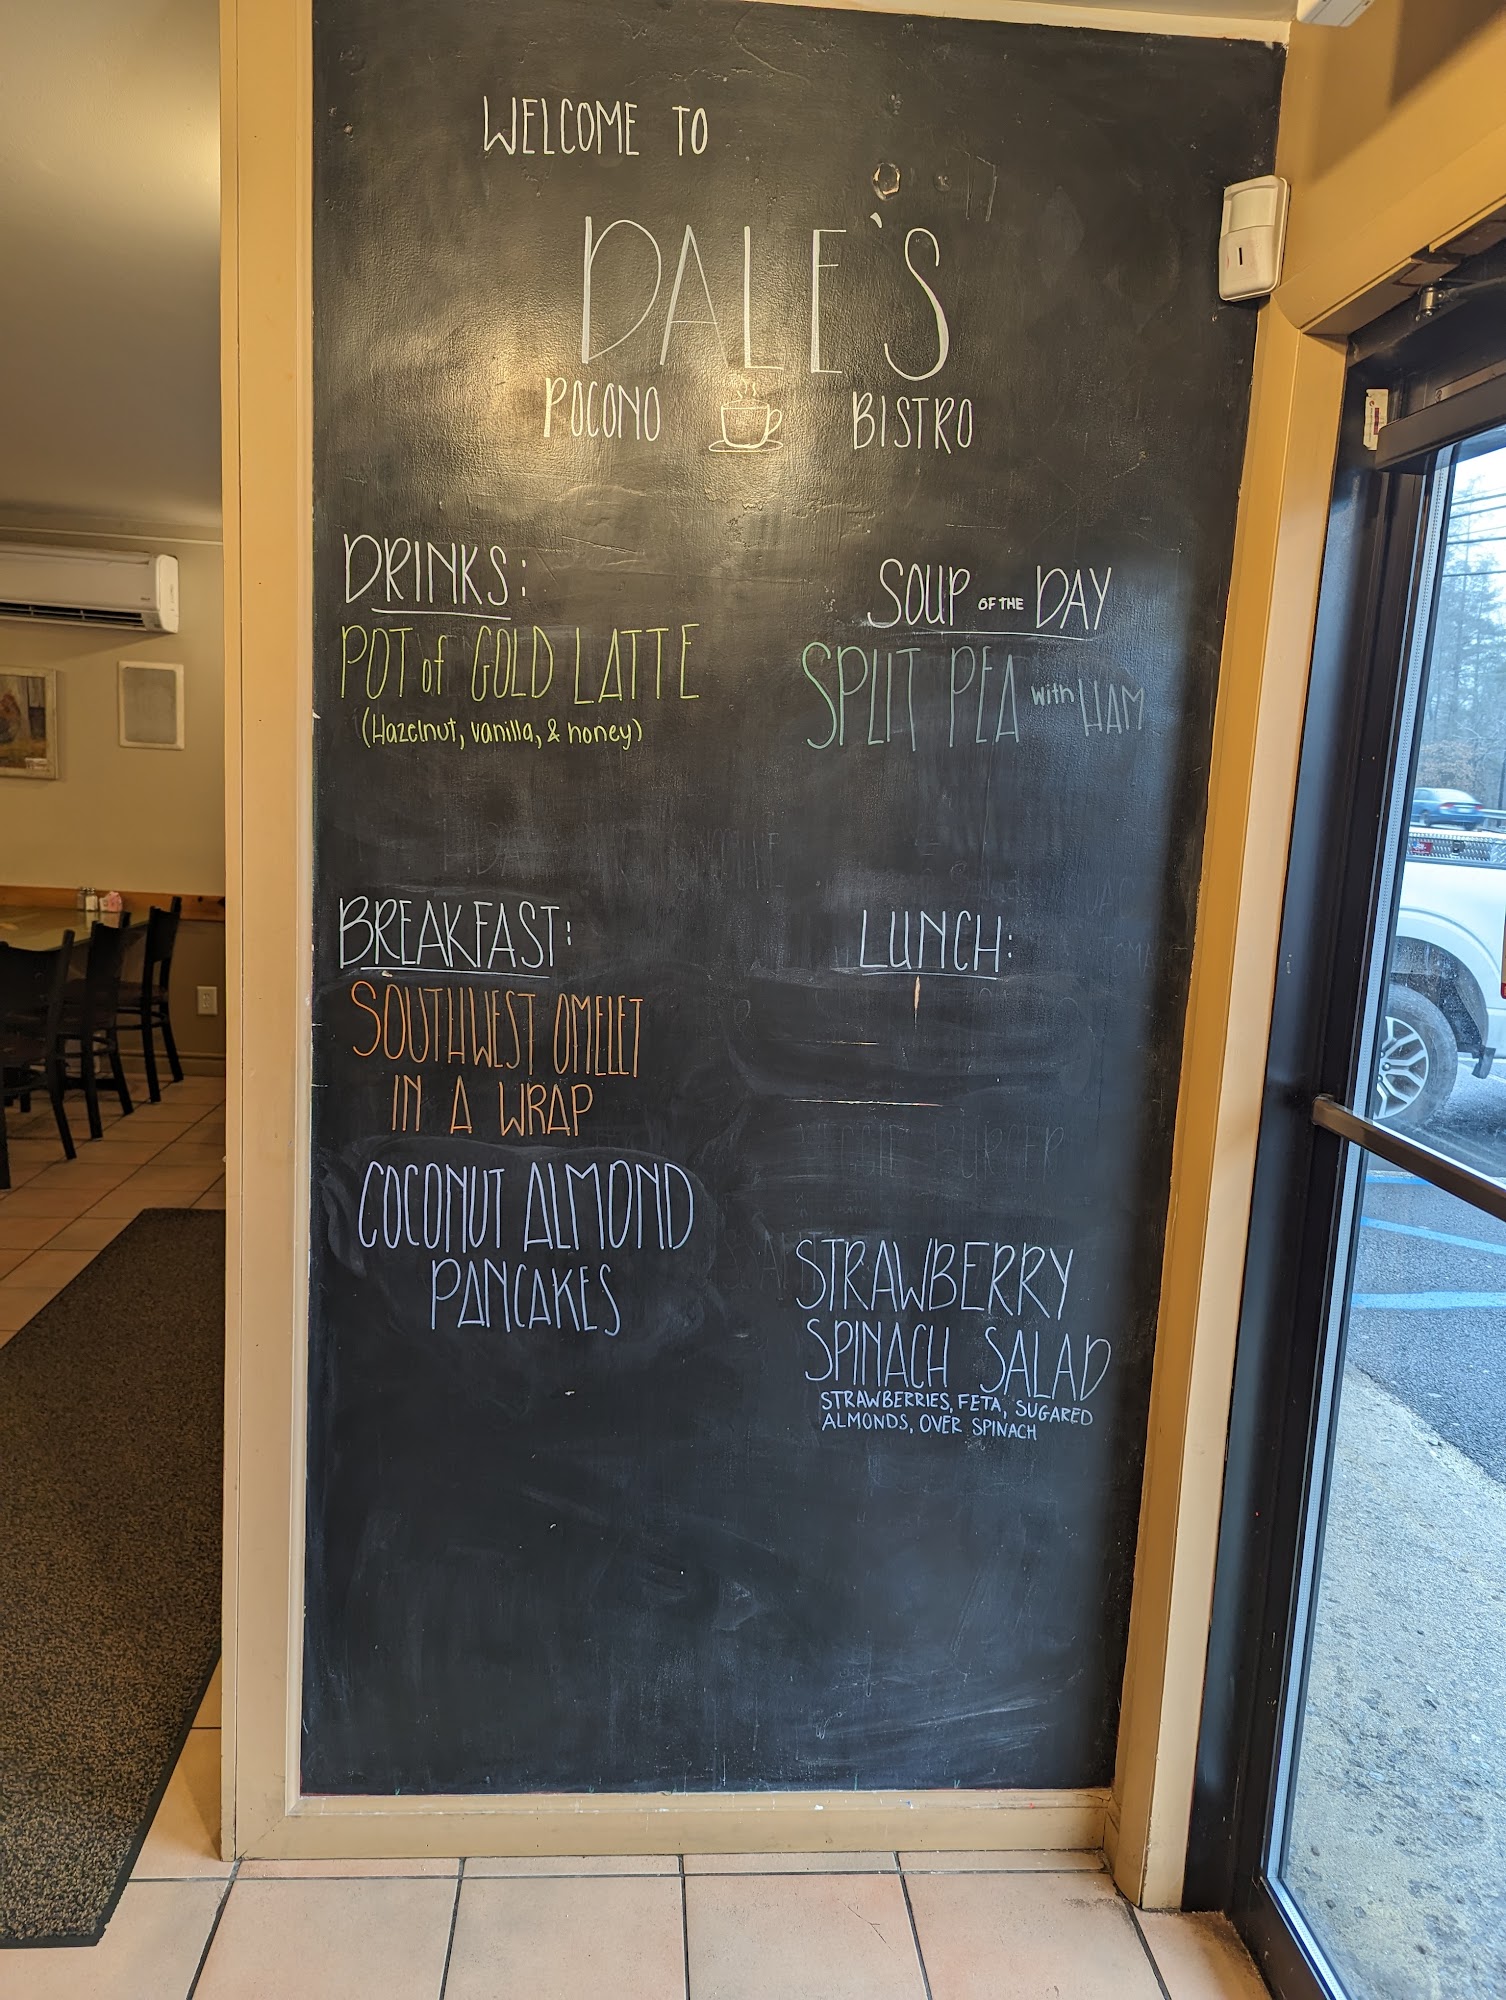 WELCOME TO
DALE'S
POCONO BISTRO
DRINKS:
POT of GOLD LATTE
(Hazelnut, vanilla, & honey)
SOUP OF THE DAY
SPLIT PEA with HAM
BREAKFAST:
SOUTHWEST OMELET
IN A WRAP
COCONUT ALMOND
PANCAKES
LUNCH:
STRAWBERRY
SPINACH SALAD
STRAWBERRIES, FETA, SUGARED
ALMONDS, OVER SPINACH